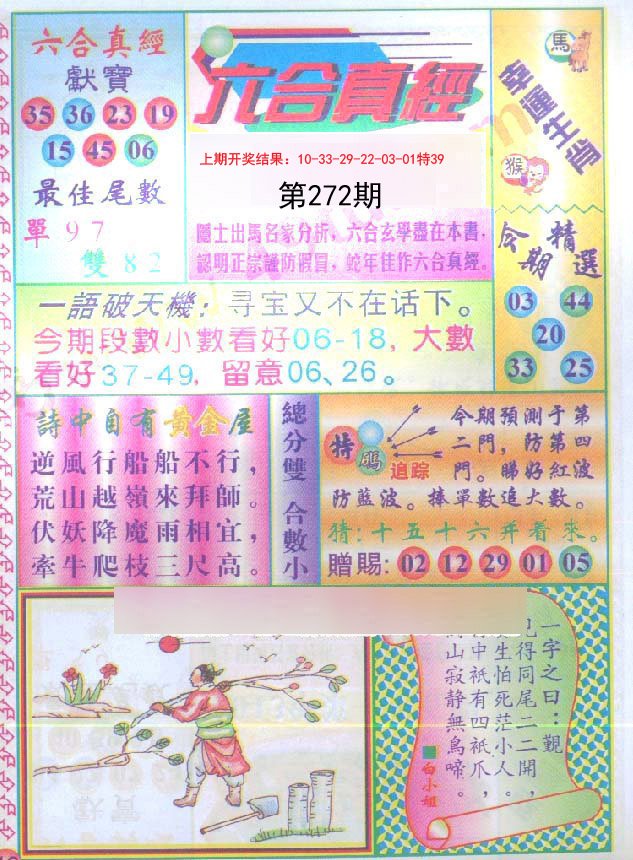 六合真經
獻寶
35 36 23 19
15 45 06
最佳尾數
單 9 7
雙 8 2
六合真經
上期开奖结果：10-33-29-22-03-01特39
第272期
隱士出馬名家分析，六合玄學盡在本書，
認明正宗謹防假冒，蛇年佳作六合真經。
馬
幸運生肖
猴
今期精選
03 44
20
33 25
一語破天機：寻宝又不在话下。
今期段數小數看好06-18，大數
看好37-49，留意06、26。
詩中自有黃金屋
逆風行船船不行，
荒山越嶺來拜師。
伏妖降魔雨相宜，
牽牛爬枝三尺高。
總分雙 合數小
特碼
追踪
今期預測于第
二門，防第四
門。睇好紅波
防藍波。捧單數追大數。
猜：十五十六开看來。
贈賜：02 12 29 01 05
一字之曰：觀
得同尾二二開，
生怕死茫小人。
中祇有四祇爪，
山寂静無鳥啼。
白小姐